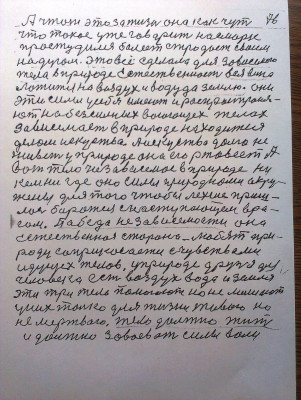 76
А что это за тизн она как чут
что токое уже говорит насморк
простудился болеет страдает своим
недугом. Это всё сделала для зовисимово
тела в природе Естественност вся вина
ложит на воздух и воду да землю. они
эти силы у себя имеют и распространя-
ют на бессилных болеющих телах
Зависимост в природе находится
делом искуства. А искуство долго не
живет у природе она его ртовест А
вот тело независимое в природе ни
кемни где оно силы природными окру-
жены для того чтобы лехше приш-
лос боротся с наступающим вра-
гом. Победа независимости она
естественная сторона любят при-
роду соприкосатся с чувствами
идущих телов, у природе друзя для
человека Ест воздух вода и земля
эти три тела помогают но не мешают
у них толко для жизни живого но
не мертвого. тело должно жит
и должно завоеват силы волу